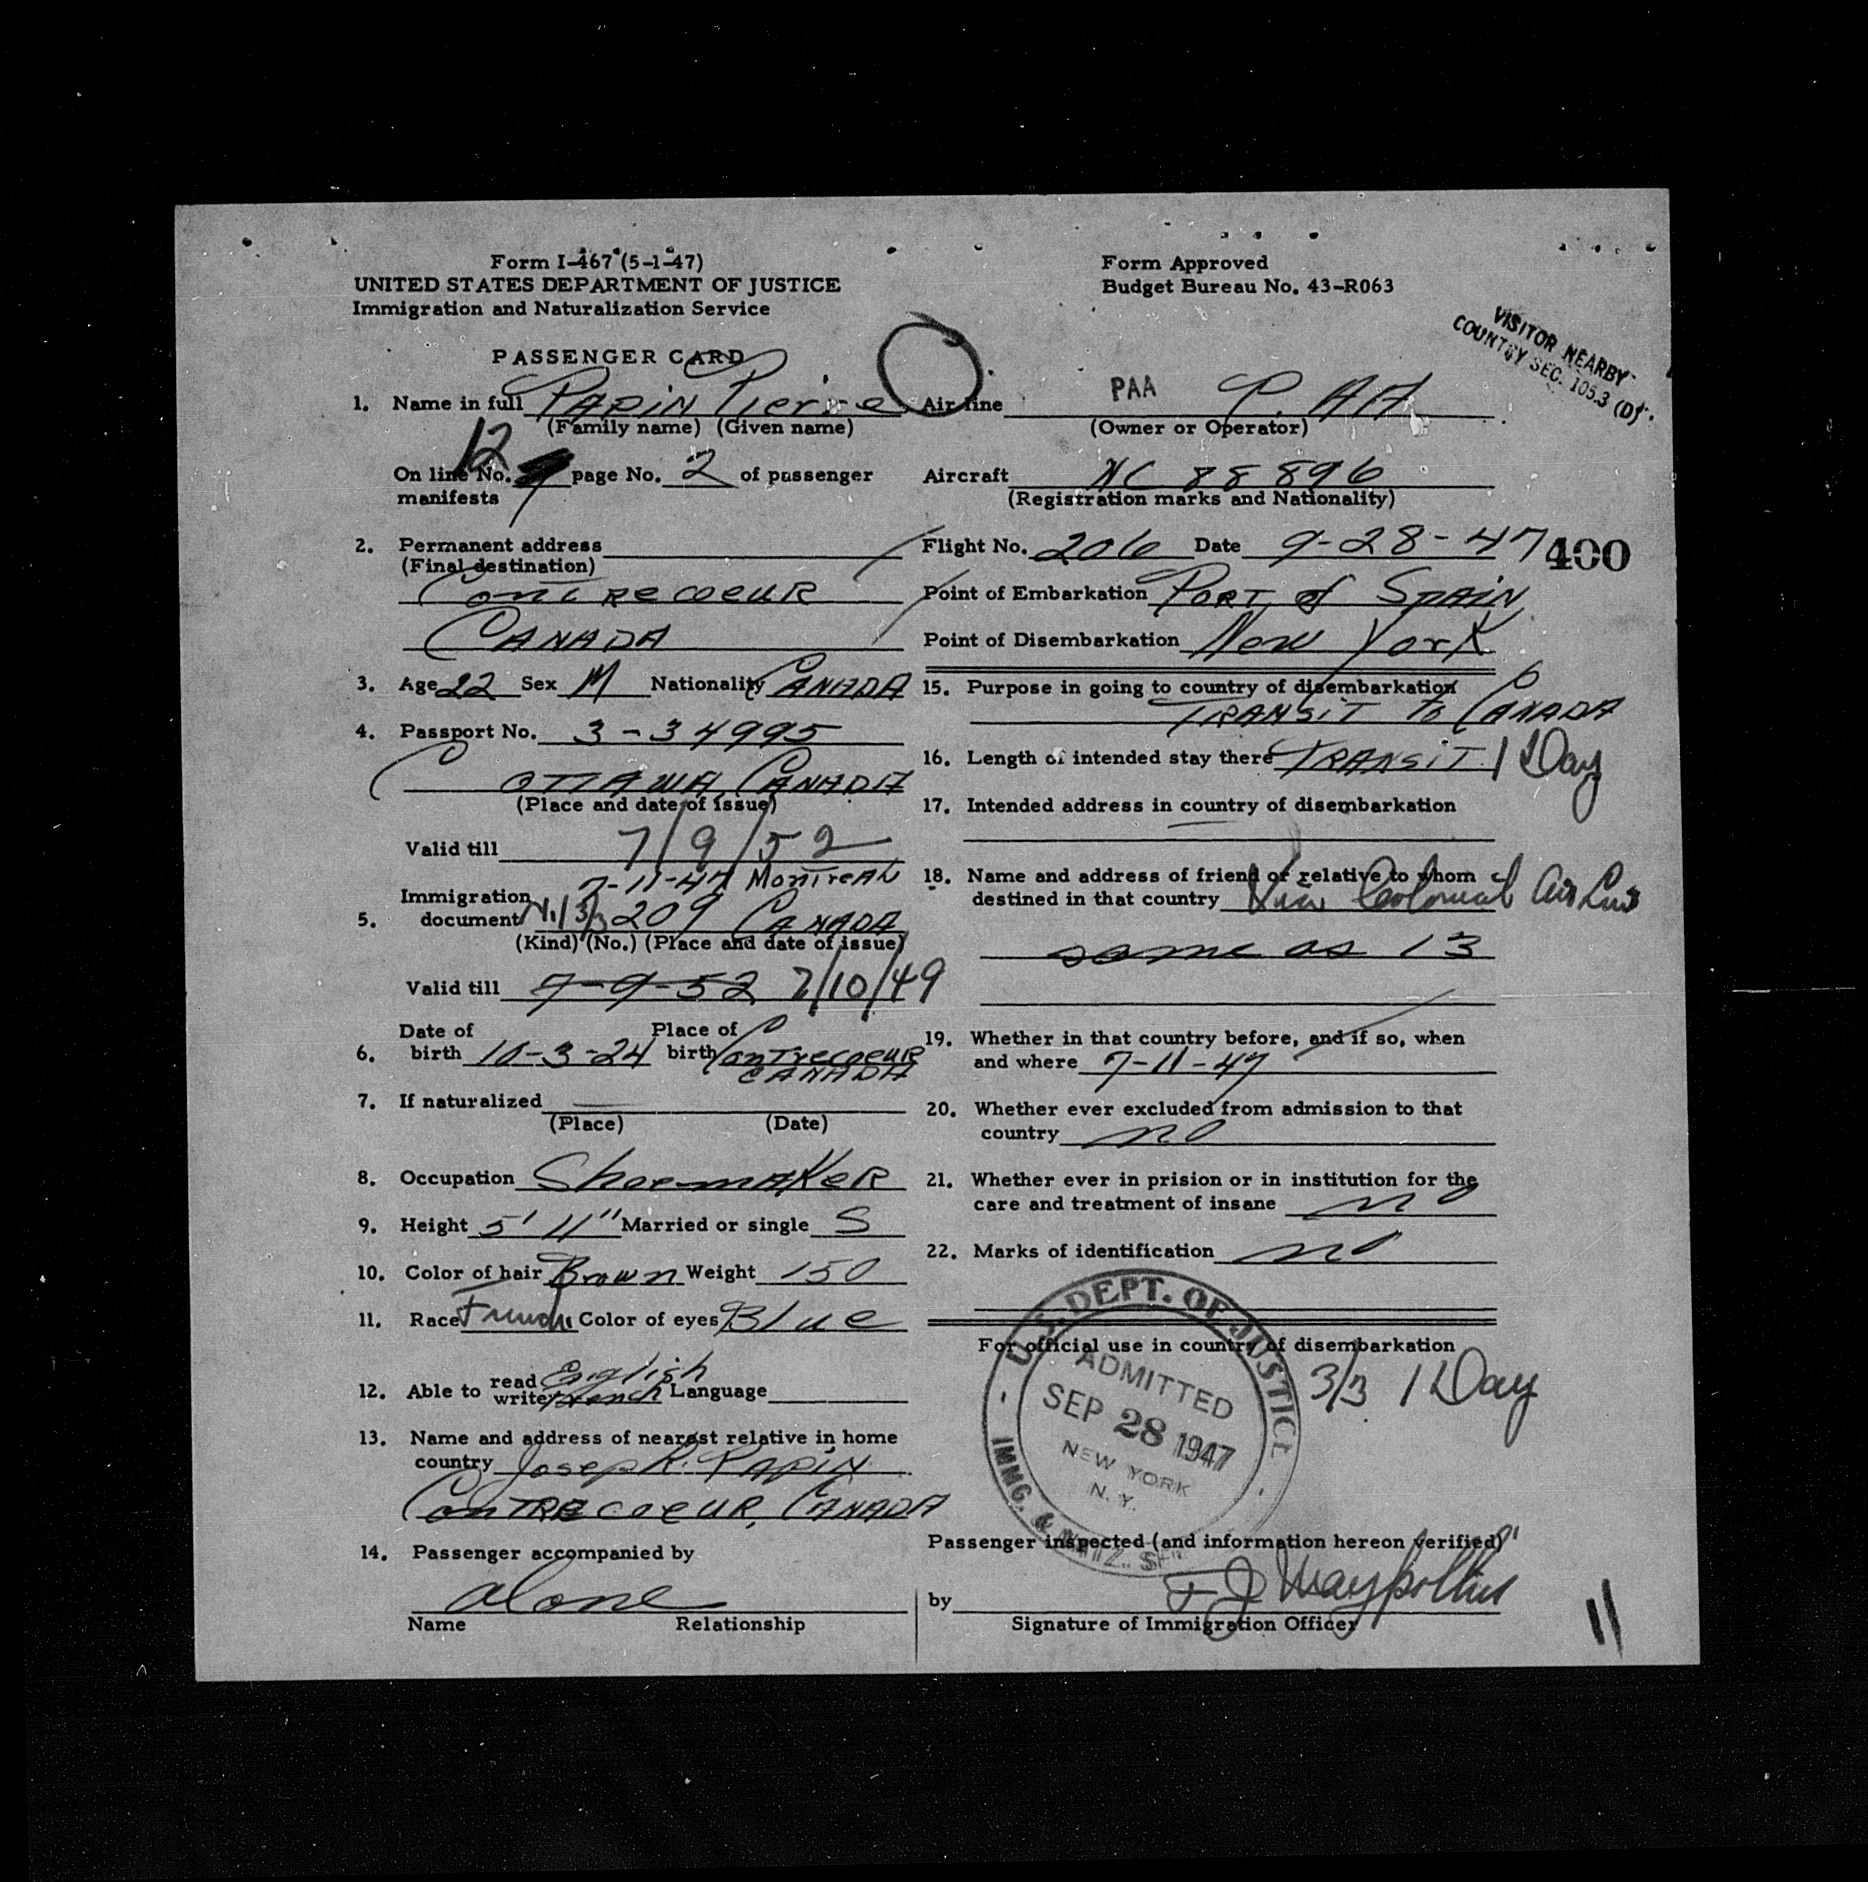 Form I-467 (5-1-47)
UNITED STATES DEPARTMENT OF JUSTICE
Immigration and Naturalization Service
Form Approved
Budget Bureau No. 43-R063
VISITOR NEARBY
COUNTRY SEC. 105.3 (D)
PASSENGER CARD
1. Name in full PAPIN Pierre
(Family name) (Given name)
12
On line No. page No. 2 of passenger
manifests
2. Permanent address
(Final destination)
Contrecoeur
CANADA
3. Age 22 Sex M Nationality CANADA
4. Passport No. 3-34995
OTTAWA, CANADA
(Place and date of issue)
Valid till 7/9/52
7-11-47 MonTreAl
Immigration
5. document 3/3 209 CANADA
(Kind) (No.) (Place and date of issue)
Valid till 7-9-52 7/10/49
Date of Place of
6. birth 10-3-24 birth Contrecoeur
CANADA
7. If naturalized
(Place) (Date)
8. Occupation ShoemaKeR
9. Height 5' 11" Married or single S
10. Color of hair Brown Weight 150
11. Race French Color of eyes Blue
12. Able to read English
write French Language
13. Name and address of nearest relative in home
country Joseph R. PAPIN
ConTRecoeur, CANADA
14. Passenger accompanied by
alone
Name Relationship
Air line PAA P.AA
(Owner or Operator)
Aircraft NC 88896
(Registration marks and Nationality)
Flight No. 206 Date 9-28-47 400
Point of Embarkation PORT of SPAIN
Point of Disembarkation New York
15. Purpose in going to country of disembarkation
TRANSIT To CANADA
16. Length of intended stay there TRANSIT 1 Day
17. Intended address in country of disembarkation
18. Name and address of friend or relative to whom
destined in that country Via Colonial Air Lines
same as 13
19. Whether in that country before, and if so, when
and where 7-11-47
20. Whether ever excluded from admission to that
country no
21. Whether ever in prision or in institution for the
care and treatment of insane no
22. Marks of identification no
For official use in country of disembarkation
3/3 1 Day
U.S. DEPT. OF JUSTICE
ADMITTED
SEP 28 1947
NEW YORK
N. Y.
IMMG. & NATZ. SER
Passenger inspected (and information hereon verified)
by
Signature of Immigration Officer
11